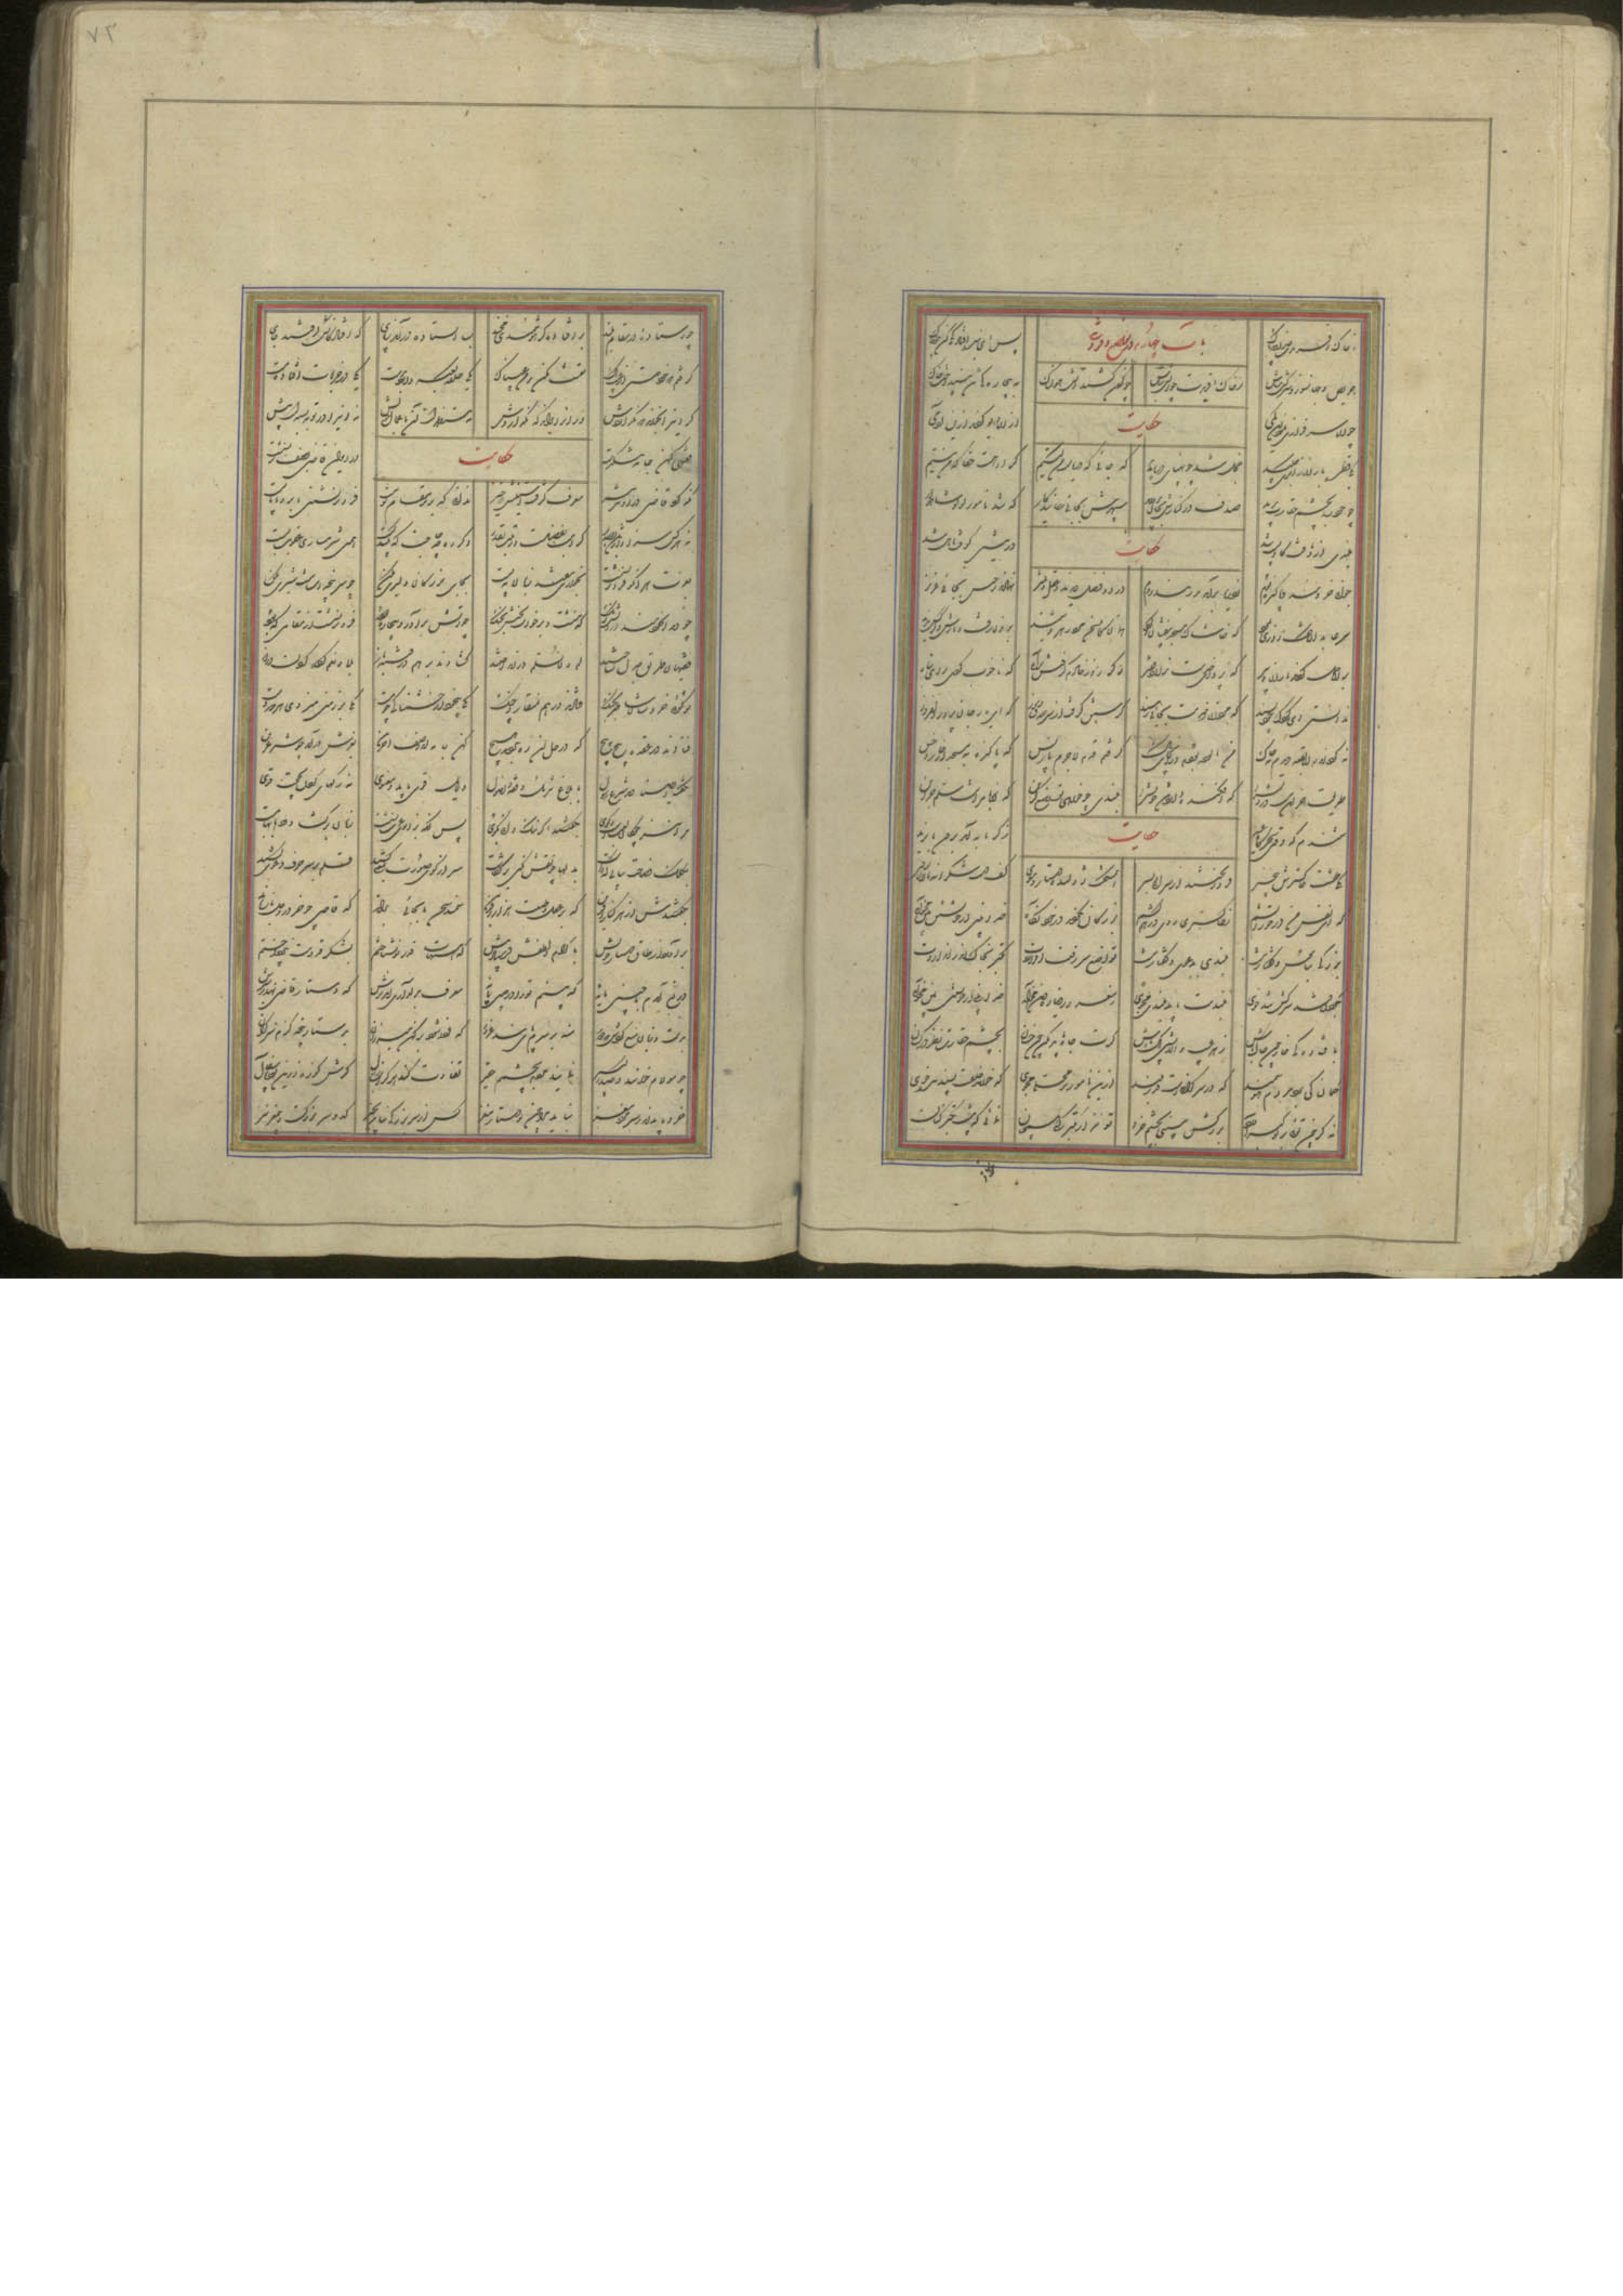 ز خاک آفریدت خداوند پاک باب چهارم در تواضع و فروتنی پس ای بنده افتادگی کن چو خاک
حریص و جهانسوز و سرکش مباش ز خاک آفریدت چو آتش مباش چو گردن کشید آتش هولناک به بیچارگی تن بینداخت خاک
چو آن سرفرازی نمود این کمی حکایت از آن دیو کردند ازین آدمی
یکی قطره باران ز ابری چکید خجل شد چو پهنای دریا بدید که جائی که دریاست من کیستم گر او هست حقا که من نیستم
چو خود را بچشم حقارت بدید صدف در کنارش بجان پرورید سپهرش بجائی رسانید کار که شد نامور لؤلؤ شاهوار
بلندی از آن یافت کو پست شد حکایت در نیستی کوفت تا هست شد
جوانی خردمند پاکیزه بوم ز دریا برآمد بدربند روم درو فضل دیدند و عقل و تمیز نهادند رختش بجائی عزیز
سر صالحان گفت روزی بمرد که خاشاک مسجد بیفشان و گرد همان کاین سخن مرد رهرو شنید برون رفت و بازش کس آنجا ندید
بر آن حمل کردند یاران و پیر که پروای خدمت ندارد فقیر دگر روز خادم گرفتش براه که ناخوب کردی برای تباه
ندانستی ای کودک خودپسند که مردان ز خدمت بجائی رسند گرستن گرفت از سر صدق و سوز که ای یار جان پرور دلفروز
نه گرد اندر آن بقعه دیدم نه خاک من آلوده بودم در آن جای پاک گرفتم قدم لاجرم باز پس که پاکیزه به مسجد از خاک و خس
طریقت جز این نیست درویش را که افکنده دارد تن خویش را بلندیت باید تواضع گزین که آن بام را نیست سلم جز این
شنیدم که وقتی سحرگاه عید حکایت ز گرمابه آمد برون بایزید
یکی طشت خاکسترش بیخبر فرو ریختند از سرائی بسر همی گفت ژولیده دستار و موی کف دست شکرانه مالان بروی
که ای نفس من در خور آتشم بخاکستری روی درهم کشم بزرگان نکردند در خود نگاه خدا بینی از خویشتن بین مخواه
بزرگی بناموس و گفتار نیست بلندی بدعوی و پندار نیست تواضع سر رفعت افرازدت تکبر بخاک اندر اندازدت
بگردن فتد سرکش تندخوی بلندیت باید بلندی مجوی
گرت جاه باید مکن چون خسان بچشم حقارت نظر در کسان
گمان کی برد مردم هوشمند که در سرگرانیست قدر بلند ازین نامورتر محلی مجوی که خوانند خلقت پسندیده خوی
نه گر چون توئی بر تو کبر آورد بزرگش نبینی بچشم خرد تو نیز ار تکبر کنی همچنان نمائی که پیشت تکبر کنان
چو استاده در مقام بلند بر افتاده گر هوشمندی مخند بسا ایستاده درآمد ز پای که افتادگانش گرفتند جای
گرفتم که خود هستی از عیب پاک تعنت مکن بر من عیبناک یکی حلقه کعبه دارد بدست یکی در خرابات افتاده مست
گر این را بخواند که نگذاردش ور آنرا براند که باز آردش نه مستظهر است آن باعمال خویش نه این را در توبه بسته است پیش
فقیهی کهن جامه تنگدست حکایت در ایوان قاضی بصف برنشست
نگه کرد قاضی درو تیز تیز معرف گرفت آستینش که خیز ندانی که برتر مقام تو نیست فروتر نشین یا برو یا بایست
نه هر کس سزاوار باشد بصدر کرامت بفضلست و رتبت بقدر دگر ره چه حاجت که پند کست همین شرمساری عقوبت بست
بعزت هر آنکو فروتر نشست بخواری نیفتد ز بالا به پست بجای بزرگان دلیری مکن چو سرپنجه ات نیست شیری مکن
چو دید آن خردمند درویش رنگ که بنشست و برخاست بختش بجنگ چو آتش برآورد بیچاره دود فروتر نشست از مقامی که بود
فقیهان طریق جدل ساختند لم و لا نسلم درانداختند گشادند بر هم در فتنه باز بلا و نعم کرده گردن دراز
تو گفتی خروسان شاطر بجنگ فتادند درهم بمنقار و چنگ یکی بیخود از خشمناکی چو مست یکی بر زمین میزند هر دو دست
فتادند در عقده پیچ پیچ که در حل آن ره نبردند هیچ کهن جامه در صف آخرترین بغرش درآمد چو شیر عرین
بگفت ای صنادید شرع رسول بابلاغ تنزیل و فقه و اصول دلایل قوی باید و معنوی نه رگهای گردن بحجت قوی
مرا نیز چوگان لعبست و گوی بگفتند اگر نیک دانی بگوی پس آنگه بزانوی عزت نشست زبان برگشاد و دهانها ببست
بکلک فصاحت بیانی که داشت بدلها چو نقش نگین برنگاشت سر از کوی صورت بمعنی کشید قلم بر سر حرف دعوی کشید
بگفتندش از هر کنار آفرین که بر عقل و طبعت هزار آفرین سمند سخن تا بجائی براند که قاضی چو خر در وحل باز ماند
برون آمد از طاق و دستار خویش باکرام و لطفش فرستاد پیش که هیهات قدر تو نشناختم بشکر قدومت نپرداختم
دریغ آیدم با چنین مایه که بینم ترا در چنین پایه معرف بدلداری آمد برش که دستار قاضی نهد بر سرش
بدست و زبان منع کردش که دور منه بر سرم پای بند غرور که فردا شود بر کهن میزران بدستار پنجه گزم سرگران
چو مولام خوانند و صدر کبیر نمایند مردم بچشمم حقیر تفاوت کند هرگز آب زلال گرش کوزه زرین بود یا سفال
خرد باید اندر سر مرد و مغز نباید مرا چون تو دستار نغز کس از سر بزرگی نباشد بچیز کدو سر بزرگست و بیمغز نیز